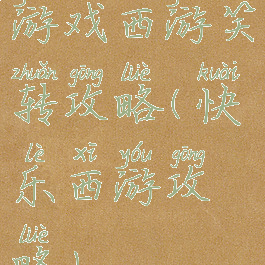 游戏西游笑
zhuǎn gōng lüè kuài
转攻略(快
lè xī yóu gōng
乐西游攻
lüè
略)